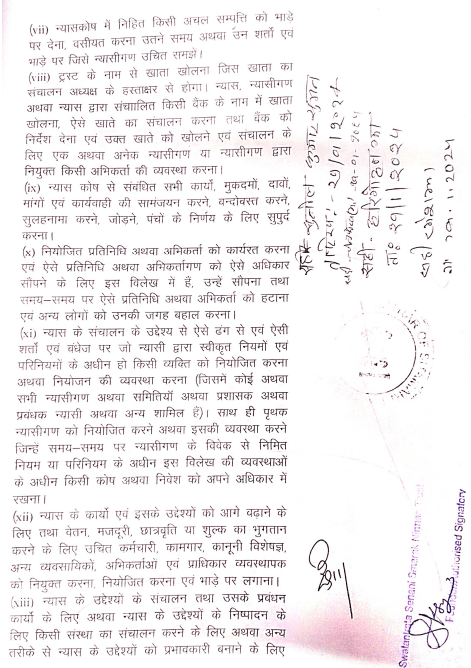 (vii) न्यासकोष में निहित किसी अचल सम्पत्ति को भाड़े
पर देना, वसीयत करना उतने समय अथवा उन शर्तो एवं
भाड़े पर जिसे न्यासीगण उचित समझें।
(viii) ट्रस्ट के नाम से खाता खोलना जिस खाता का
संचालन अध्यक्ष के हस्ताक्षर से होगा। न्यास, न्यासीगण
अथवा न्यास द्वारा संचाालित किसी बैंक के नाम में खाता
खोलना, ऐसे खाते का संचालन करना तथा बैंक को
निर्देश देना एवं उक्त खाते को खोलने एवं संचालन के
लिए एक अथवा अनेक न्यासीगण या न्यासीगण द्वारा
नियुक्त किसी अभिकर्ता की व्यवस्था करना।
(ix) न्यास कोष से संबंधित सभी कार्यो, मुकदमों, दावों,
मांगों एवं कार्यवाही की सामंजयन करने, बन्दोवस्त करने,
सुलहनामा करने, जोड़ने, पंचों के निर्णय के लिए सुपुर्द
करना।
(x) नियोजित प्रतिनिधि अथवा अभिकर्ता को कार्यरत करना
एवं ऐसे प्रतिनिधि अथवा अभिकर्तागण को ऐसे अधिकार
सौपने के लिए इस विलेख में हैं, उन्हें सौपना तथा
समय–समय पर ऐसे प्रतिनिधि अथवा अभिकर्ता को हटाना
एवं अन्य लोगों को उनकी जगह बहाल करना।
(xi) न्यास के संचालन के उद्देश्य से ऐसे ढंग से एवं ऐसी
शर्तो एवं बंधेज पर जो न्यासी द्वारा स्वीकृत नियमों एवं
परिनियमों के अधीन हो किसी व्यक्ति को नियोजित करना
अथवा नियोजन की व्यवस्था करना (जिसमें कोई अथवा
सभी न्यासीगण अथवा समितियाँ अथवा प्रशासक अथवा
प्रबंधक न्यासी अथवा अन्य शामिल हैं)। साथ ही पृथक
न्यासीगण को नियोजित करने अथवा इसकी व्यवस्था करने
जिन्हें समय–समय पर न्यासीगण के विवेक से निमित
नियम या परिनियम के अधीन इस विलेख की व्यवस्थाओं
के अधीन किसी कोष अथवा निवेश को अपने अधिकार में
रखना।
(xii) न्यास के कार्यो एवं इसके उद्देश्यों को आगे बढ़ाने के
लिए तथा वेतन, मजदूरी, छात्रवृति या शुल्क का भुगतान
करने के लिए उचित कर्मचारी, कामगार, कानूनी विशेषज्ञ,
अन्य व्यवसायिकों, अभिकर्ताओं एवं प्राधिकार व्यवस्थापक
को नियुक्त करना, नियोजित करना एवं भाड़े पर लगाना।
(xiii) न्यास के उद्देश्यों के संचालन तथा उसके प्रबंधन
कार्यो के लिए अथवा न्यास के उद्देश्यों के निष्पादन के
लिए किसी संस्था का संचालन करने के लिए अथवा अन्य
तरीके से न्यास के उद्देश्यों को प्रभावकारी बनाने के लिए
Swatantrata Senani
Authorised Signatory